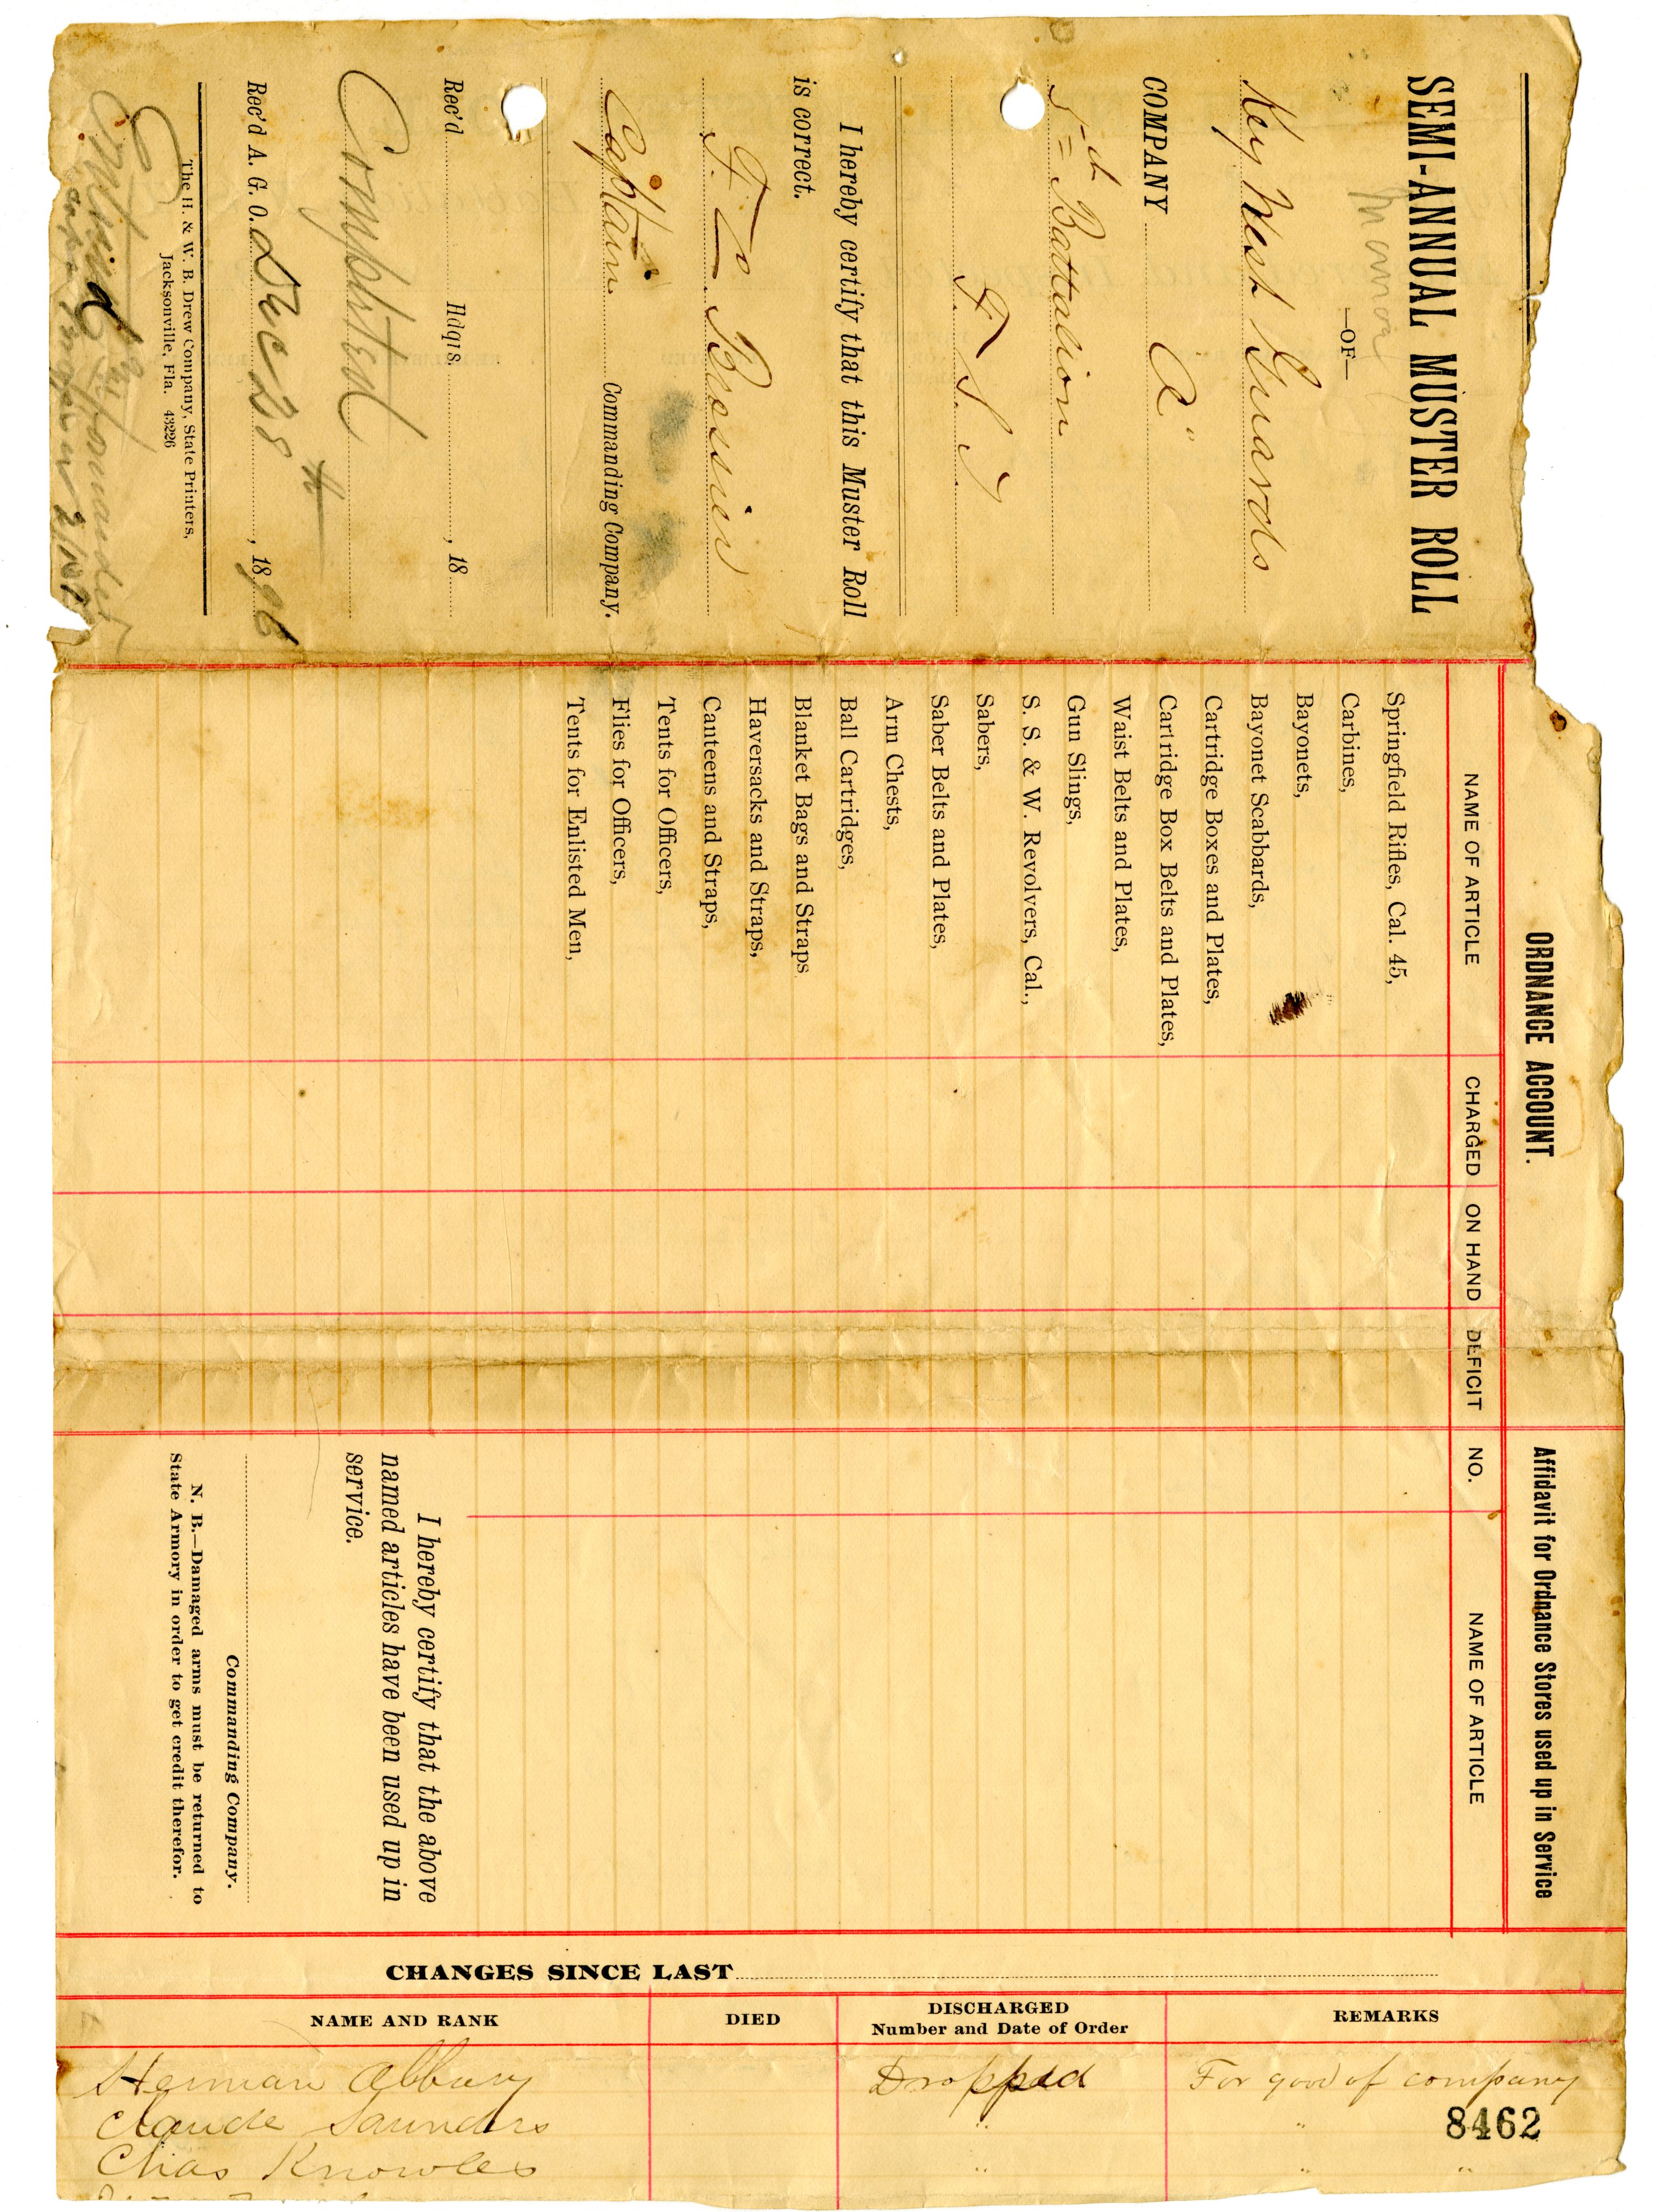 SEMI-ANNUAL MUSTER ROLL
—OF—
Key West Guards
COMPANY "A"
5th Battalion
F. S. T
I hereby certify that this Muster Roll
is correct.
Captain Commanding Company.
Rec'd Hdqrs. , 18
Completed
Rec'd A. G. O. Dec 28th , 1896
The H. & W. B. Drew Company, State Printers,
Jacksonville, Fla. 43226
ORDNANCE ACCOUNT.
NAME OF ARTICLE CHARGED ON HAND DEFICIT
Springfield Rifles, Cal. 45,
Carbines,
Bayonets,
Bayonet Scabbards,
Cartridge Boxes and Plates,
Cartridge Box Belts and Plates,
Waist Belts and Plates,
Gun Slings,
S. S. & W. Revolvers, Cal.,
Sabers,
Saber Belts and Plates,
Arm Chests,
Ball Cartridges,
Blanket Bags and Straps
Haversacks and Straps,
Canteens and Straps,
Tents for Officers,
Flies for Officers,
Tents for Enlisted Men,
Affidavit for Ordnance Stores used up in Service
NO. NAME OF ARTICLE
I hereby certify that the above
named articles have been used up in
service.
Commanding Company.
N. B.—Damaged arms must be returned to
State Armory in order to get credit therefor.
CHANGES SINCE LAST
NAME AND RANK DIED DISCHARGED Number and Date of Order REMARKS
Herman Albury Dropped For good of company
Claude Saunders " "
8462
Chas Knowles " " "